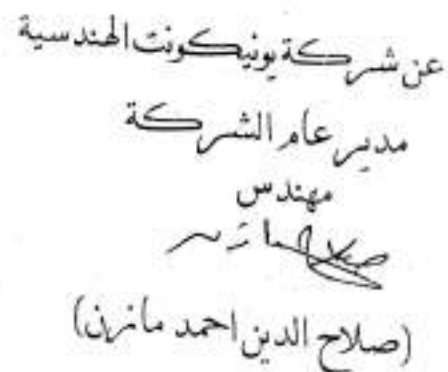 عن شركة يونيكونت الهندسية
مدير عام الشركة
مهندس
(صلاح الدين احمد مازن)